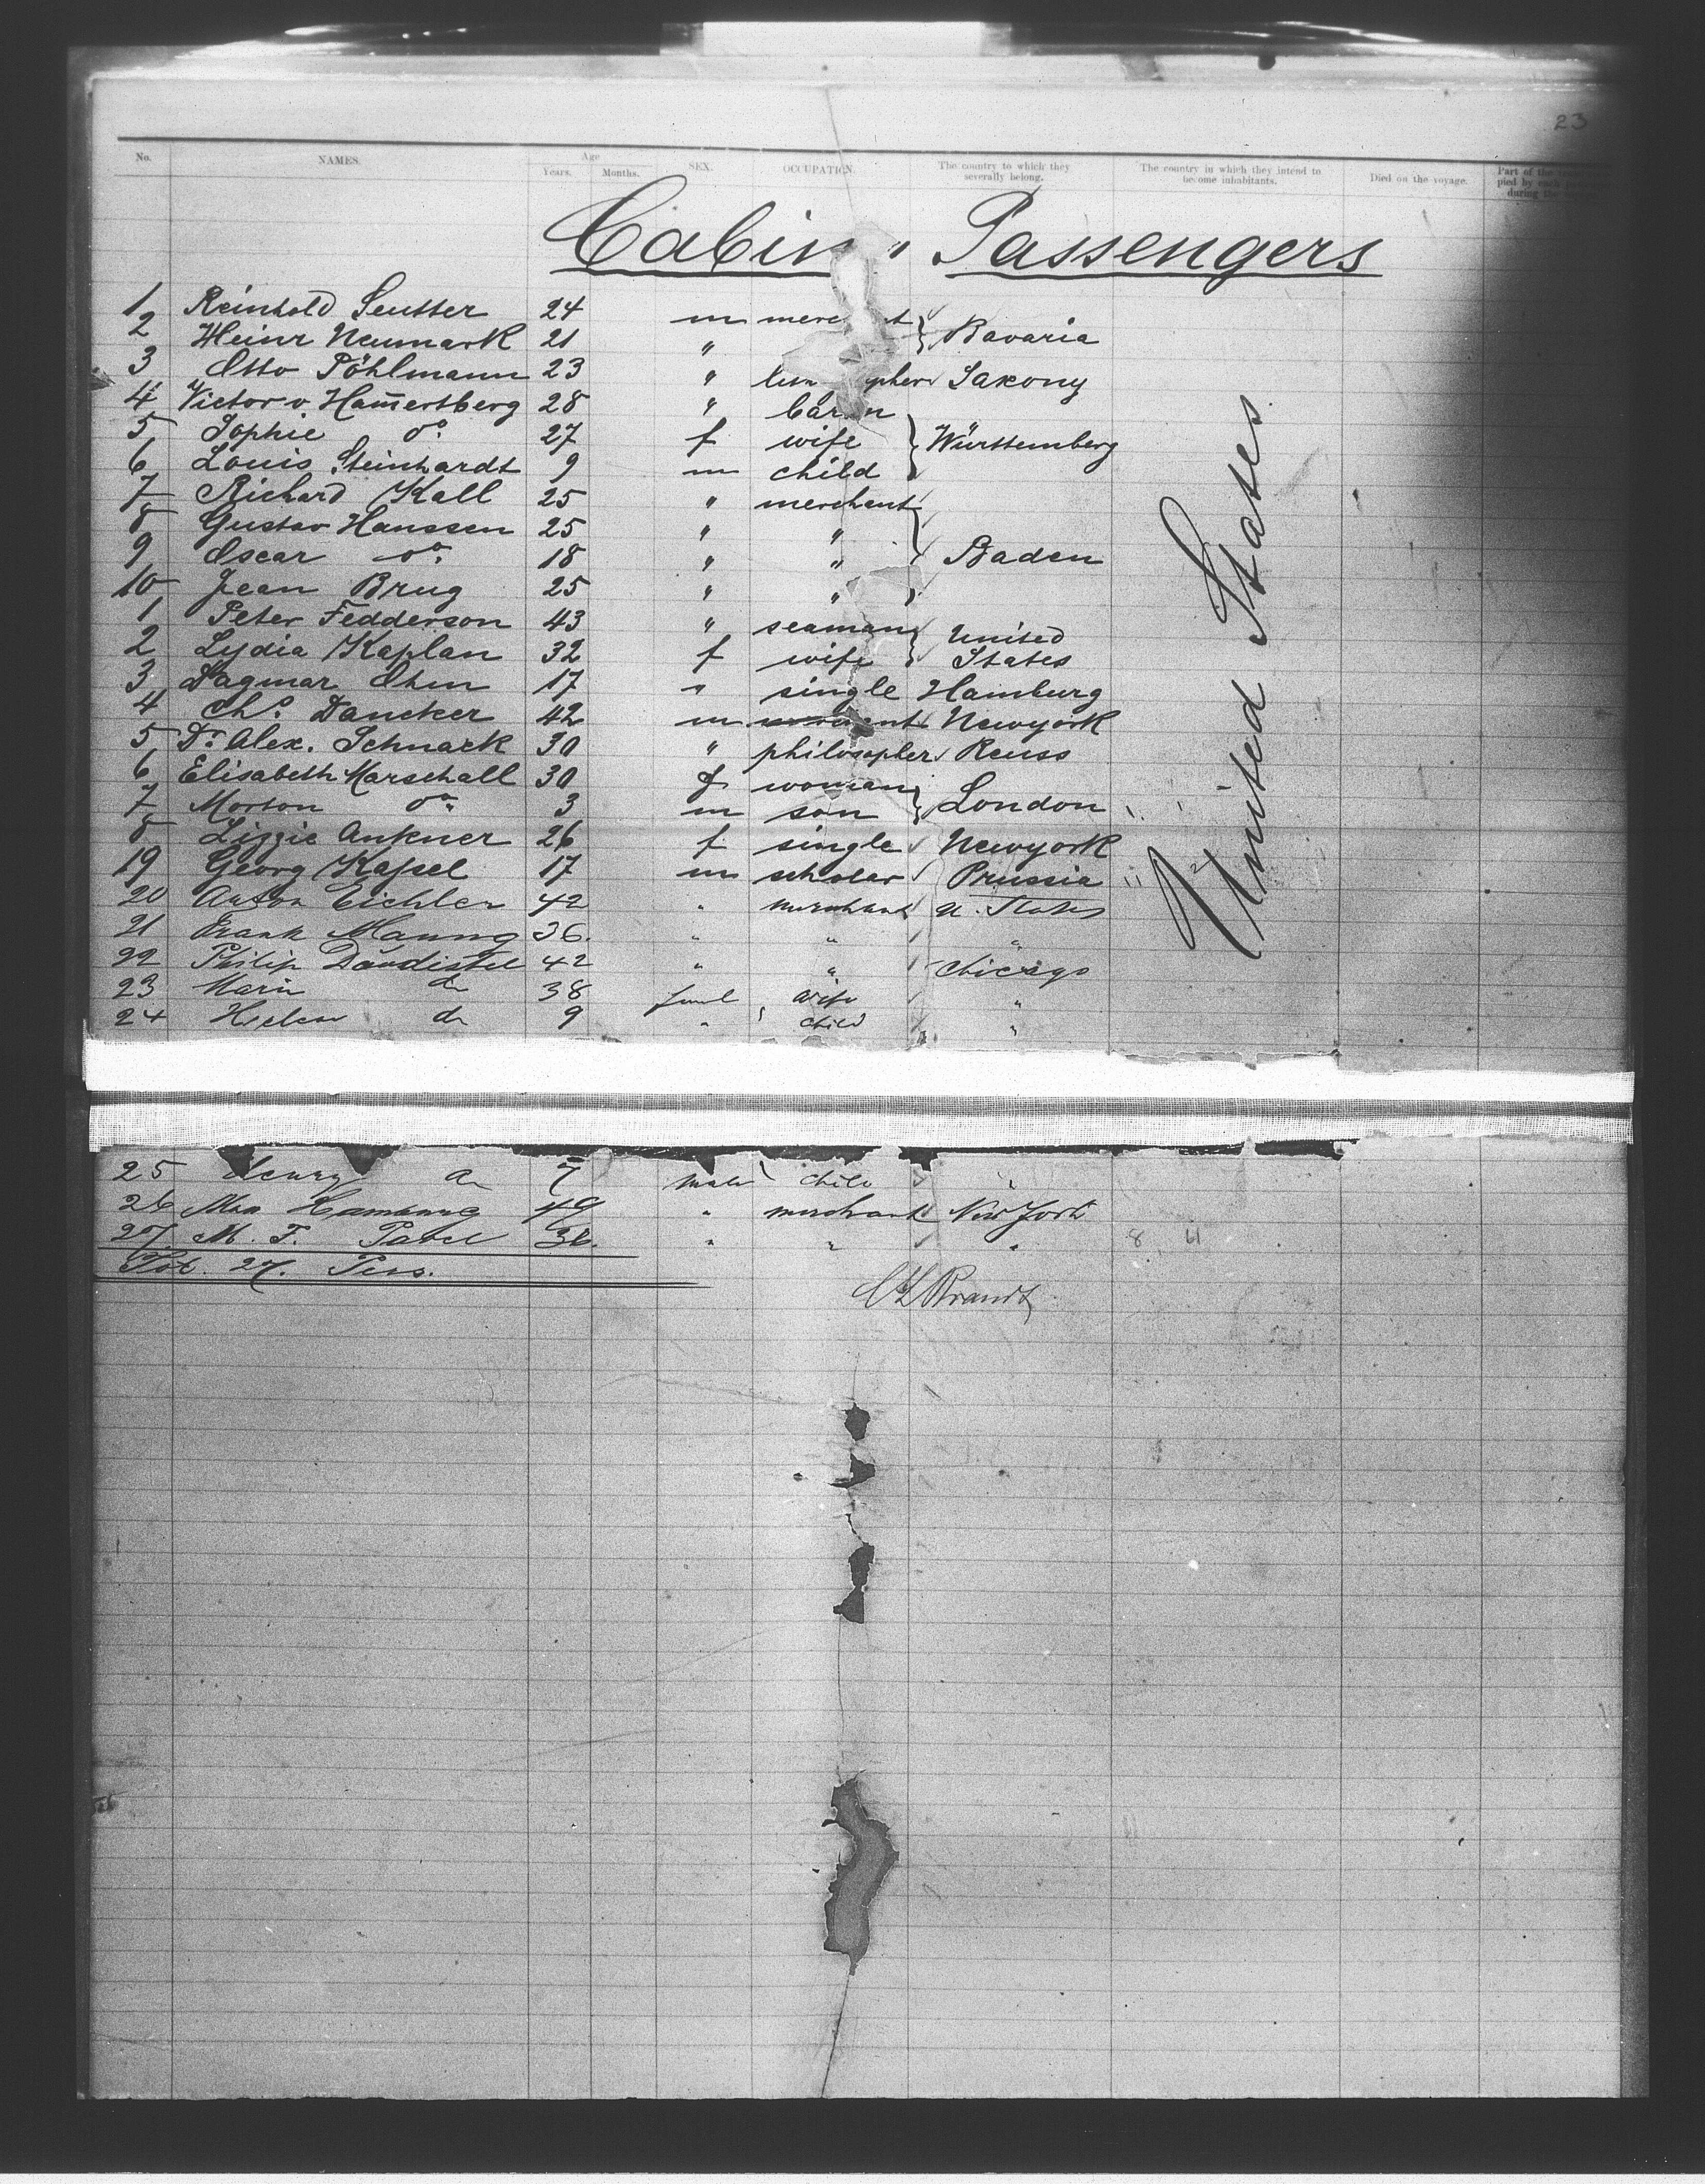 23
No. NAMES. Age SEX. OCCUPATION. The country to which they severally belong. The country in which they intend to become inhabitants. Died on the voyage. Part of the
Years. Months. pied by each
during the
Cabin Passengers
1 Reinhold Seutter 24 m Bavaria
2 Heinr Neumark 21 "
3 Otto Pöhlmann 23 " Saxony
4 Victor v Ham̅ertberg 28 " baron
5 Sophie do 27 f wife Württemberg
6 Louis Steinhardt 9 m child
7 Richard Kall 25 " merchant
8 Gustav Hanssen 25 " "
9 Oscar do 18 " " Baden
10 Jean Brug 25 " "
1 Peter Fedderson 43 " seaman United
2 Lydia Kaplan 32 f wife States
3 Dagmar Ohm 17 " single Hamburg
4 Chs Dancker 42 m Newyork
5 Dr Alex. Schnack 30 " philosopher Reuss
6 Elisabeth Marschall 30 f woman
7 Morton do 3 m son London
8 Lizzie Ankner 26 f single Newyork
19 Georg Kassel 17 m scholar Prussia
20 Anton Eichler 42 " merchant U. States
21 Frank Manng 36. " " "
22 Philip Daudistel 42 " " Chicago
23 Marie do 38 feml wife "
24 Helen do 9 " child "
United States
25 Henry do 7 male child "
26 Max Hamburg 49 " merchant New York
27 M. F. 36. " " "
8 11
Tot. 27. Pers.
Brandt